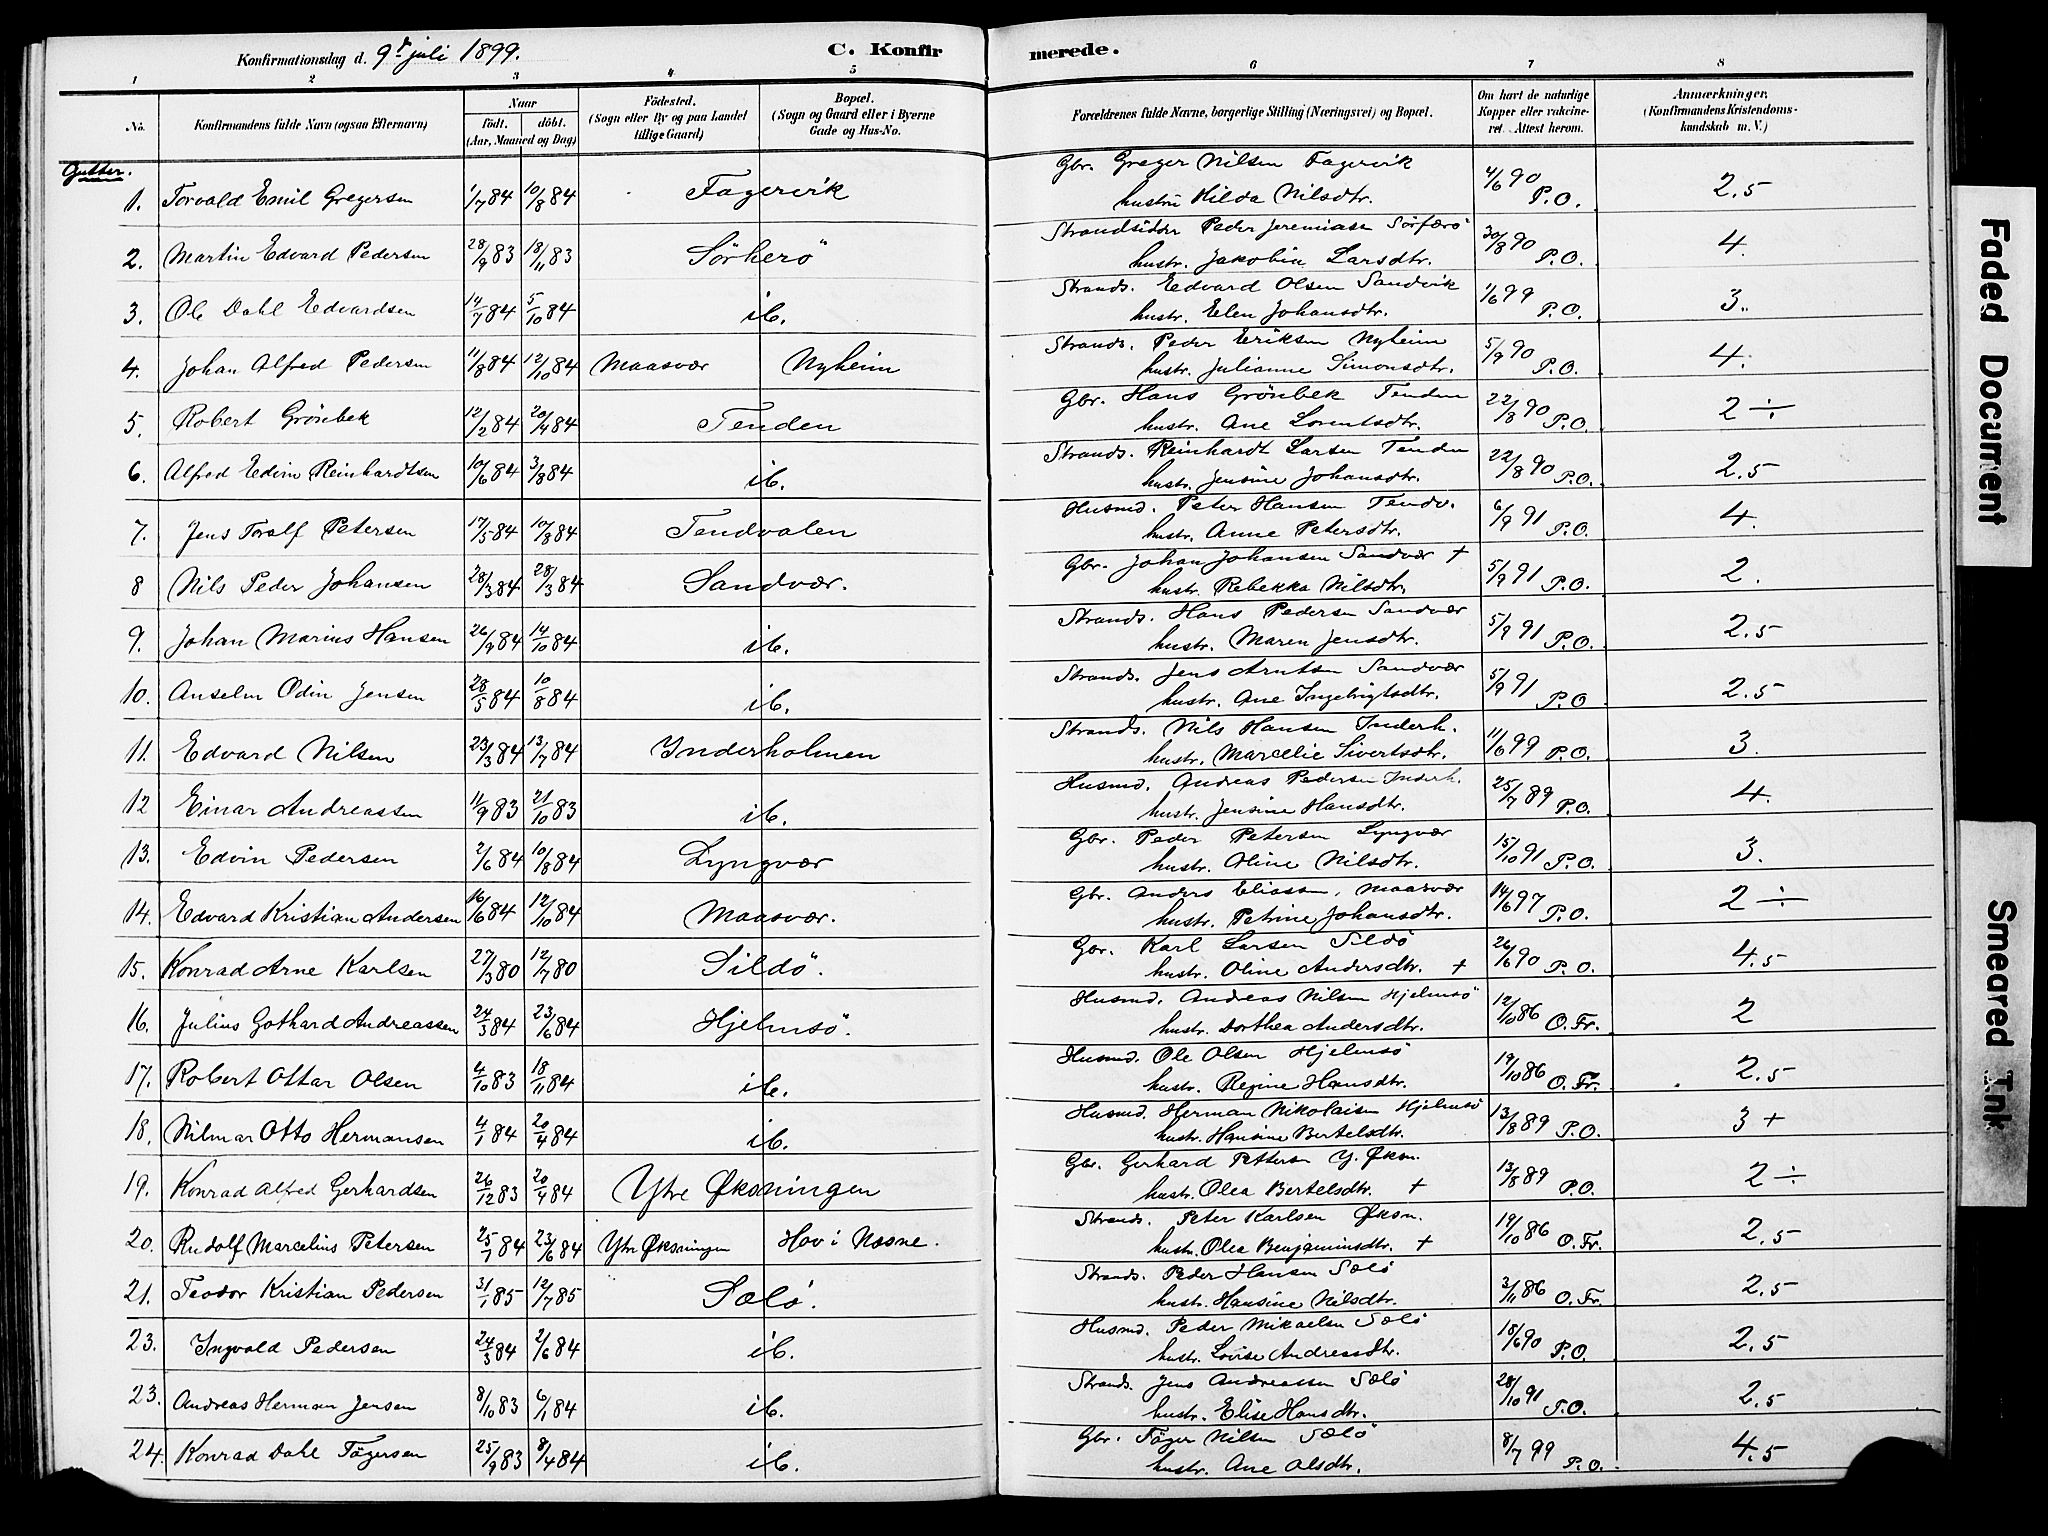 Konfirmationsdag d. 9d juli 1899.
C. Konfirmerede.
1 2 3 4 5 6 7 8
No. Konfirmandens fulde Navn (ogsaa Efternavn) Naar födt. döbt. (Aar, Maaned og Dag) Födested. (Sogn eller By og paa Landet tillige Gaard) Bopæl. (Sogn og Gaard eller i Byerne Gade og Hus-No. Forældrenes fulde Navne, borgerlige Stilling (Næringsvei) og Bopæl. Om havt de naturlige Kopper eller vakcineret. Attest herom. Anmærkninger, (Konfirmandens Kristendomskundskab m. V.)
Gutter.
1. Torvald Emil Gregersen 1/7 84 10/8 84 Fagervik Gbr. Greger Nilsen Fagervik 4/6 90 P.O. 2.5
hustru Hilda Nilsdtr.
2. Martin Edvard Pedersen 28/9 83 18/11 83 Sörherö Strandsidder Peder Jeremiasen Sörherö 30/8 90 P.O. 4.
hustr. Jakobine Larsdtr.
3. Ole Dahl Edvardsen 14/7 84 5/10 84 ib. Strands. Edvard Olsen Sandvik 1/6 99 P.O. 3.
hustr. Elen Johansdtr.
4. Johan Alfred Pedersen 11/8 84 12/10 84 Maasvær Nyheim Strands. Peder Eriksen Nyheim 5/9 90 P.O. 4.
hustr. Julianne Simonsdtr.
5. Robert Grönbek 12/2 84 20/4 84 Tenden Gbr. Hans Grönbek Tenden 22/8 90 P.O. 2 ÷
hustr. Ane Lorentsdtr.
6. Alfred Edvin Reinhardtsen 10/6 84 3/8 84 ib. Strands. Reinhardt Larsen Tenden 22/8 90 P.O. 2.5
hustr. Jensine Johansdtr.
7. Jens Toralf Petersen 17/5 84 10/8 84 Tendvalen Husmd. Peter Hansen Tendv. 6/9 91 P.O. 4.
hustr. Anne Petersdtr.
8 Nils Peder Johansen 28/3 84 28/3 84 Sandvær. Gbr. Johan Johansen Sandvær + 5/9 91 P.O. 2.
hustr. Rebekka Nilsdtr.
9. Johan Marius Hansen 26/9 84 14/10 84 ib. Strands. Hans Pedersen Sandvær 5/9 91 P.O. 2.5
hustr. Maren Jensdtr.
10. Anselm Odin Jensen 28/5 84 10/8 84 ib. Strands. Jens Arntsen Sandvær 5/9 91 P.O 2.5
hustr. Ane Ingebrigtsdtr.
11. Edvard Nilsen 23/3 84 13/7 84 Ynderholmen Strands. Nils Hansen Inderh. 11/6 99 P.O. 3.
hustr. Marcelie Sivertsdtr.
12 Einar Andreassen 11/9 83 21/10 83 ib. Husmd. Andreas Pedersen Inderh. 25/7 89 P.O. 4.
hustr. Jensine Hansdtr.
13. Edvin Pedersen 2/6 84 10/8 84 Lyngvær Gbr. Peder Petersen Lyngvær 15/10 91 P.O. 3.
hustr. Oline Nilsdtr.
14. Edvard Kristian Andersen 16/6 84 12/10 84 Maasvær. Gbr. Anders Eliassen, Maasvær 14/6 97 P.O. 2 ÷
hustr. Petrine Johansdtr.
15. Konrad Arne Karlsen 27/3 80 12/7 80 Sildö. Gbr. Karl Larsen Sildö 26/6 90 P.O. 4.5
hustr. Oline Andersdtr. +
16. Julius Gothard Andreassen 24/3 84 23/6 84 Hjelmsö. Husmd. Andreas Nilsen Hjelmsö 12/10 86 O.Fr. 2
hustr. Dorthea Andersdtr.
17. Robert Ottar Olsen 4/10 83 18/11 84 ib. Husmd. Ole Olsen Hjelmsö 19/10 86 O.Fr. 2.5
hustr. Regine Hansdtr.
18. Hilmar Otto Hermansen 4/1 84 20/4 84 ib. Husmd. Herman Nikolaisen Hjelmsö 13/8 89 P.O. 3 +
hustr. Hansine Bertelsdtr.
19. Konrad Alfred Gerhardsen 26/12 83 20/4 84 Ytre Øksningen Gbr. Gerhard Pettersen Y. Øksn. 13/8 89 P.O. 2 ÷
hustr. Olea Bertelsdtr. +
20. Rudolf Marcelius Petersen 25/1 84 23/6 84 Ytre Øksningen Hov i Næsne. Strands. Peter Karlsen Øksn. 19/10 86 O.Fr. 2.5
hustr. Olea Benjaminsdtr. +
21. Teodor Kristian Pedersen 31/1 85 12/7 85 Sælö. Strands. Peder Hansen Sælö 3/11 86 O.Fr. 2.5
hustr. Hansine Nilsdtr.
23. Ingvald Pedersen 24/3 84 2/6 84 ib. Husmd. Peder Mikaelsen Sælö 18/6 90 P.O. 2.5
hustr. Lovise Andreasdtr.
23. Andreas Herman Jensen 8/10 83 6/1 84 ib. Strands. Jens Andreassen Sælö 28/10 91 P.O. 2.5
hustr. Elise Hansdtr.
24. Konrad Dahl Tögersen 25/9 83 8/4 84 ib. Gbr. Töger Nilsen Sælö 8/7 99 P.O. 4.5
hustr. Ane Olsdtr.
Faded Document
Smeared Ink